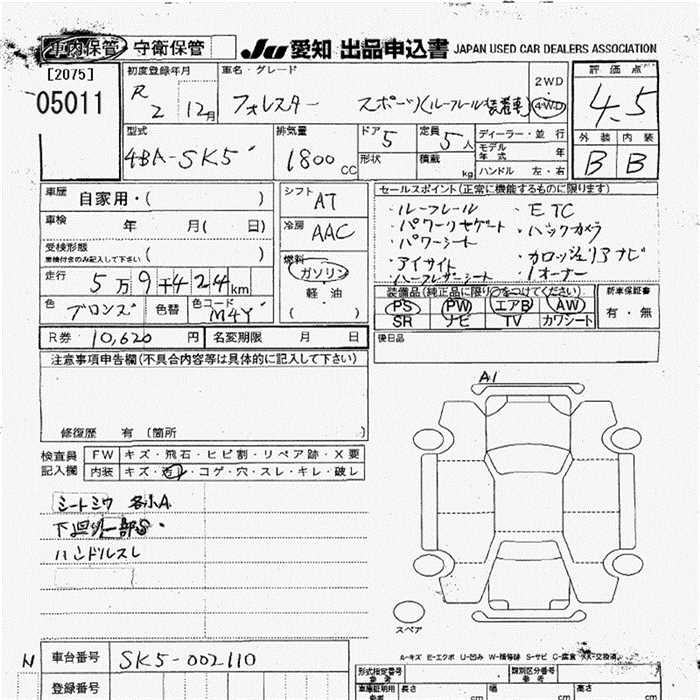 車内保管 守衛保管
JU 愛知 出品申込書 JAPAN USED CAR DEALERS ASSOCIATION
[2075]
05011
初度登録年月 R 2 12月
車名・グレード フォレスター スポーツ(ルーフレール装着車) 2WD 4WD
評価点 4.5
型式 4BA-SK5
排気量 1800 CC
ドア 5 形状
定員 5人 積載 kg
ディーラー・並行
モデル年式 年
ハンドル 左・右
外装 内装
B B
車歴 自家用・( )
車検 年 月( 日)
受検形態
車検付きのみ記入して下さい ( )
走行 5万9千424km
色 ブロンズ 色替 色コード M4Y
シフト AT
冷房 AAC
燃料
ガソリン
軽油
( )
セールスポイント(正常に機能するものに限ります)
・ルーフレール ・ETC
・パワーリヤゲート ・バックカメラ
・パワーシート
・アイサイト ・カロッツェリアナビ
・ハーフレザーシート ・1オーナー
装備品(純正品に限り○をつけてください)
PS PW エアB AW
SR ナビ TV カワシート
新車保証書
有・無
R券 10,620 円 名変期限 月 日
後日品
注意事項申告欄(不具合内容等は具体的に記入して下さい)
修復歴 有 〔箇所
検査員記入欄
FW キズ・飛石・ヒビ割・リペア跡・X要
内装 キズ・汚れ・コゲ・穴・スレ・キレ・破し
シートシワ 各小A
下廻り一部S
ハンドルスレ
A1
スペア
A-キズ E-エクボ U-凹み W-補修跡 S-サビ C-腐食 XX-交換済
N 車台番号 SK5-002110
登録番号
形式指定番号
参考
類別区分番号
参考
車庫証明用
参考
長さ cm 幅 cm 高さ cm